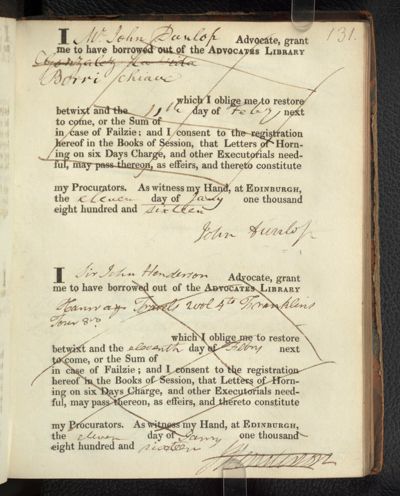 131.
I Mr John Dunlop Advocate, grant
me to have borrowed out of the ADVOCATES LIBRARY
Gonzalez
Borri
which I oblige me to restore
betwixt and the 11th day of Feby next
to come, or the Sum of
in case of Failzie; and I consent to the registration
hereof in the Books of Session, that Letters of Horn-
ing on six Days Charge, and other Executorials need-
ful, may pass thereon, as effeirs, and thereto constitute
my Procurators. As witness my Hand, at EDINBURGH,
the eleven day of Jany one thousand
eight hundred and sixteen
John Dunlop
I Sir John Henderson Advocate, grant
me to have borrowed out of the ADVOCATES LIBRARY
Hanway's Travels 2 vol 4to Franklins
Tour 8vo
which I oblige me to restore
betwixt and the eleventh day of Febry next
to come, or the Sum of
in case of Failzie; and I consent to the registration
hereof in the Books of Session, that Letters of Horn-
ing on six Days Charge, and other Executorials need-
ful, may pass thereon, as effeirs, and thereto constitute
my Procurators. As witness my Hand, at EDINBURGH,
the eleven day of Janry one thousand
eight hundred and sixteen